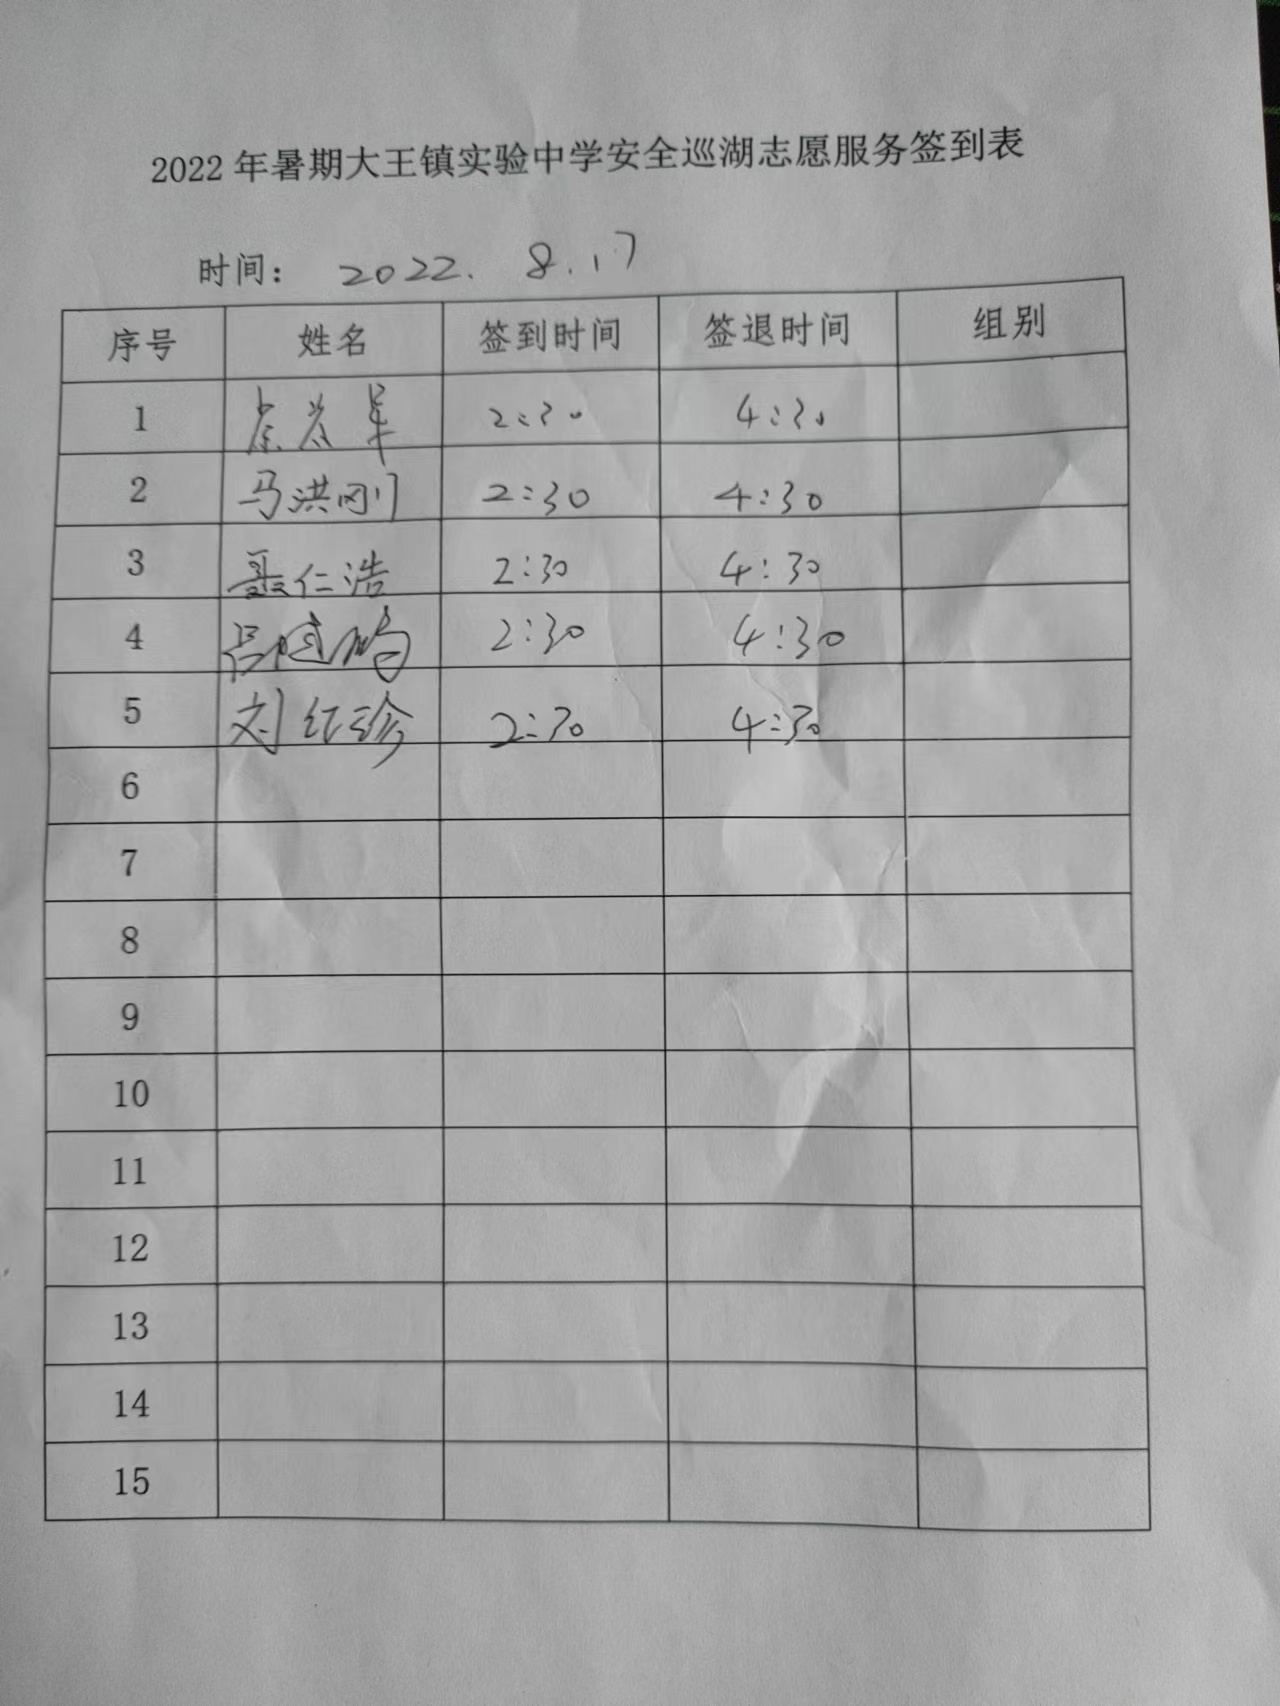 2022年暑期大王镇实验中学安全巡湖志愿服务签到表
时间： 2022. 8.17
序号 姓名 签到时间 签退时间 组别
1 2:30 4:30
2 马洪刚 2:30 4:30
3 聂仁浩 2:30 4:30
4 2:30 4:30
5 刘红珍 2:30 4:30
6
7
8
9
10
11
12
13
14
15